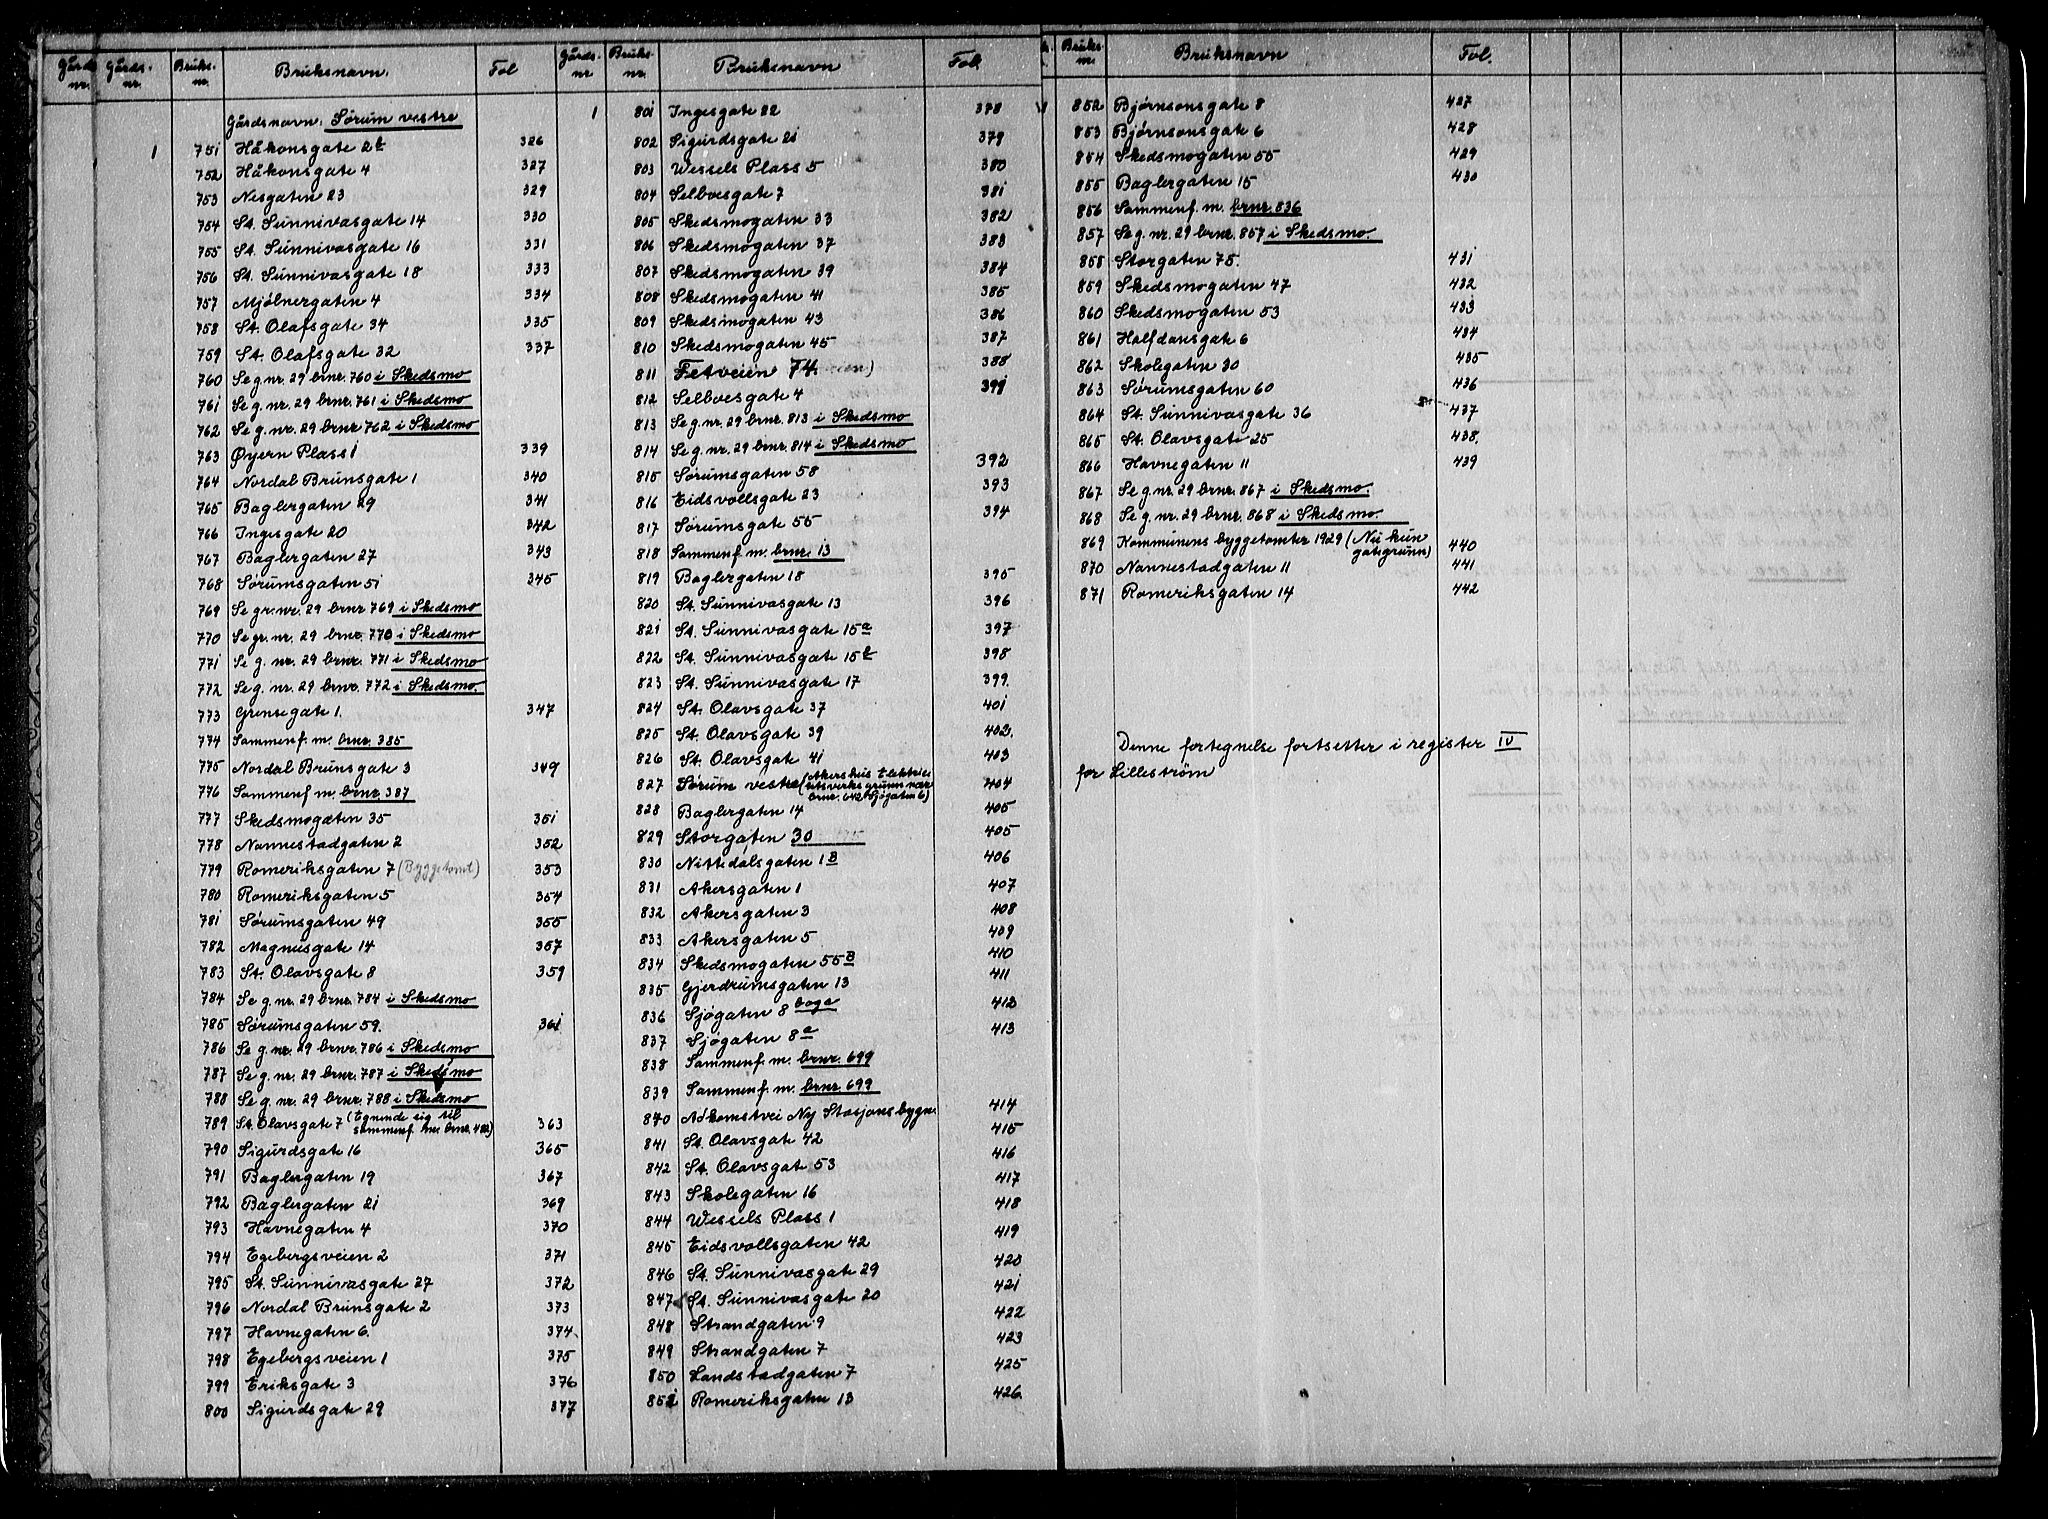 Gårds nr. Gårds- nr. Bruks- nr. Bruksnavn. Fol
Gårdsnavn: Sørum vestre
1 751 Håkonsgate 2b 326
752 Håkonsgate 4 327
753 Nesgaten 23 329
754 St. Sunnivasgate 14 330
755 St. Sunnivasgate 16 331
756 St. Sunnivasgate 18 333
757 Mjølnergaten 4 334
758 St. Olafsgate 34 335
759 St. Olafsgate 32 337
760 Se g.nr. 29 brnr. 760 i Skedsmo
761 Se g.nr. 29 brnr. 761 i Skedsmo
762 Se g.nr. 29 brnr. 762 i Skedsmo
763 Øyern Plass 1 339
764 Nordal Brunsgate 1 340
765 Baglergaten 29 341
766 Ingesgate 20 342
767 Baglergaten 27 343
768 Sørumsgaten 51 345
769 Se gr.nr. 29 brnr. 769 i Skedsmo
770 Se gr. nr. 29 brnr. 770 i Skedsmo
771 Se g. nr. 29 brnr. 771 i Skedsmo
772 Se g. nr. 29 brnr. 772 i Skedsmo.
773 Grensegate 1. 347
774 Sammenf. m. brnr. 385
775 Nordal Brunsgate 3 349
776 Sammenf. m. brnr. 387
777 Skedsmogaten 35 351
778 Nannestadgaten 2 352
779 Romeriksgaten 7 (Byggetomt) 353
780 Romeriksgaten 5 354
781 Sørumsgaten 49 355
782 Magnusgate 14 357
783 St. Olavsgate 8 359
784 Se g. nr. 29 brnr. 784 i Skedsmo
785 Sørumsgaten 59. 361
786 Se g. nr. 29 brnr. 786 i Skedsmo
787 Se g. nr. 29 brnr. 787 i Skedsmo
788 Se g. nr. 29 brnr. 788 i Skedsmo
789 St. Olavsgate 7 (Egnende sig til sammenf. mer brnr. 400) 363
790 Sigurdsgate 16 365
791 Baglergaten 19 367
792 Baglergaten 21 369
793 Havnegaten 4 370
794 Egebergsveien 2 371
795 St. Sunnivasgate 27 372
796 Nordal Brunsgate 2 373
797 Havnegaten 6. 374.
798 Egebergsveien 1 375
799 Eriksgate 3 376
800 Sigurdsgate 29 377
Gårds- nr. Bruks- nr. Bruksnavn Fol.
1 801 Ingesgate 22 378
802 Sigurdsgate 21 379
803 Wessels Plass 5 380
804 Selboesgate 7 381
805 Skedsmogaten 33 382
806 Skedsmogaten 37 383
807 Skedsmogaten 39 384
808 Skedsmogaten 41 385
809 Skedsmogaten 43 386
810 Skedsmogaten 45 387
811 Fetveien 74. 388
812 Selboesgate 4 391
813 Se g.nr. 29 brnr. 813 i Skedsmo
814 Se g. nr. 29 brnr. 814 i Skedsmo
815 Sørumsgaten 58 392
816 Eidsvollsgate 23 393
817 Sørumsgate 55 394
818 Sammenf. m. brnr. 13
819 Baglergaten 18 395
820 St. Sunnivasgate 13 396
821 St. Sunnivasgate 15a 397
822 St. Sunnivasgate 15b 398
823 St. Sunnivasgate 17 399.
824 St. Olavsgate 37 401
825 St. Olavsgate 39 402.
826 St. Olavsgate 41 403
827 Sørum vestre (Akershus Elektrisitetsverks grunn nær brnr. 642 Sjøgaten 6) 404
828 Baglergaten 14 405
829 Storgaten 30 405
830 Nittedalsgaten 1B 406
831 Akersgaten 1 407
832 Akersgaten 3 408
833 Akersgaten 5 409
834 Skedsmogaten 55B 410
835 Gjerdrumsgaten 13 411
836 Sjøgaten 8 412
837 Sjøgaten 8a 413
838 Sammenf. m. brnr. 699
839 Sammenf. m. brnr. 699
840 Adkomstvei Ny Stasjonsbygn. 414
841 St. Olavsgate 42 415
842 St. Olavsgate 53 416
843 Skolegaten 16 417
844 Wessels Plass 1 418
845 Eidsvollsgaten 42 419
846 St. Sunnivasgate 29 420
847 St. Sunnivasgate 20 421
848 Strandgaten 9 422
849 Strandgaten 7 423
850 Landstadgaten 7 425
851 Romeriksgaten 13 426.
Bruks- nr. Bruksnavn Fol.
852 Bjørnsonsgate 8 427
853 Bjørnsonsgate 6 428
854 Skedsmogaten 55 429
855 Baglergaten 15 430
856 Sammenf. m. brnr. 836
857 Se g. nr. 29 brnr. 857 i Skedsmo.
858 Storgaten 75. 431
859 Skedsmogaten 47 432
860 Skedsmogaten 53 433
861 Halfdansgate 6 434
862 Skolegaten 30 435
863 Sørumsgaten 60 436
864 St. Sunnivasgate 36 437
865 St. Olavsgate 25 438.
866 Havnegaten 11 439
867 Se g. nr. 29 brnr. 867 i Skedsmo.
868 Se g. nr. 29 brnr. 868 i Skedsmo.
869 Kommunens byggetomter 1929 (Nu kun gategrunn) 440
870 Nannestadgaten 11 441
871 Romeriksgaten 14 442
Denne fortegnelse fortsetter i register IV
for Lillestrøm